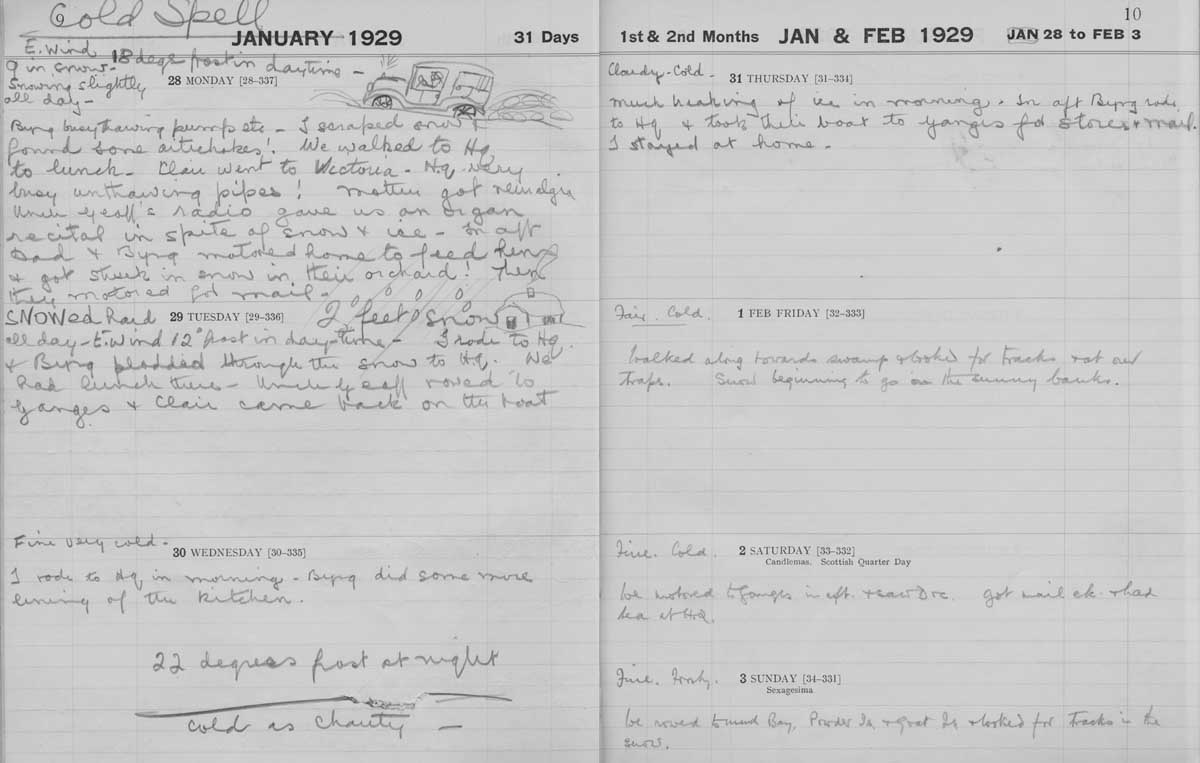 Cold Spell
JANUARY 1929 31 Days
E. Wind. 18 degs frost in daytime -
9 in. snow -
Snowing slightly
all day -
28 MONDAY [28-337]
Byng busy thawing pumps etc - I scraped snow &
found some artichokes! We walked to Hq
to lunch - Clair went to Victoria - Hq. very
busy unthawing pipes! Mother got neuralgia
Uncle Geoff's radio gave us an organ
recital in spite of snow & ice - In aft
Dad & Byng motored home to feed hens
& got stuck in snow in their orchard! Then
they motored for mail -
SNOWed Hard 29 TUESDAY [29-336] 2 feet snow
all day - E. Wind 12° frost in day-time - I rode to Hq.
& Byng plodded through the snow to Hq. We
had lunch there - Uncle Geoff rowed to
Ganges & Clair came back on the boat
Fine very cold -
30 WEDNESDAY [30-335]
I rode to Hq in morning - Byng did some more
lining of the kitchen.
22 degrees frost at night
cold as charity -
10
1st & 2nd Months JAN & FEB 1929 JAN 28 to FEB 3
Cloudy - Cold -
31 THURSDAY [31-334]
Much breaking of ice in morning. In aft Byng rode
to Hq & took their boat to Ganges for stores & mail
I stayed at home -
Fair. Cold.
1 FEB FRIDAY [32-333]
Walked along towards swamp & looked for tracks & at our
traps. Snow beginning to go on the sunny banks.
Fine. Cold.
2 SATURDAY [33-332]
Candlemas. Scottish Quarter Day
We motored to Ganges in aft. & saw Drc. got mail etc. & had
tea at HQ.
Fine. Frosty.
3 SUNDAY [34-331]
Sexagesima
We rowed round Bay, Powder Is. & Goat Is. & looked for Tracks in the
snow.